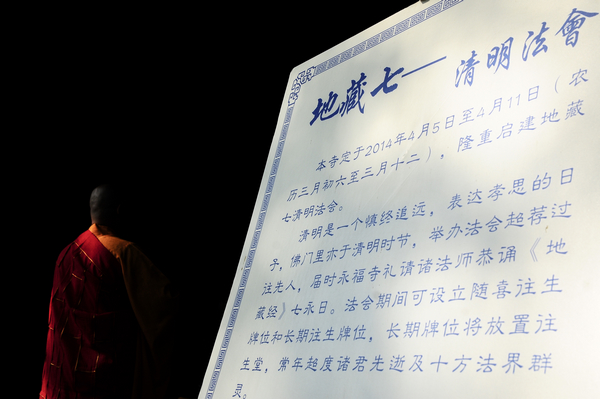 地藏七——清明法會
本寺定于2014年4月5日至4月11日（农
历三月初六至三月十二），隆重启建地藏
七清明法会。
清明是一个慎终追远，表达孝思的日
子，佛门里亦于清明时节，举办法会超荐过
往先人，届时永福寺礼请诸法师恭诵《地
藏经》七永日。法会期间可设立随喜往生
牌位和长期往生牌位，长期牌位将放置往
生堂，常年超度诸君先逝及十方法界群
灵。